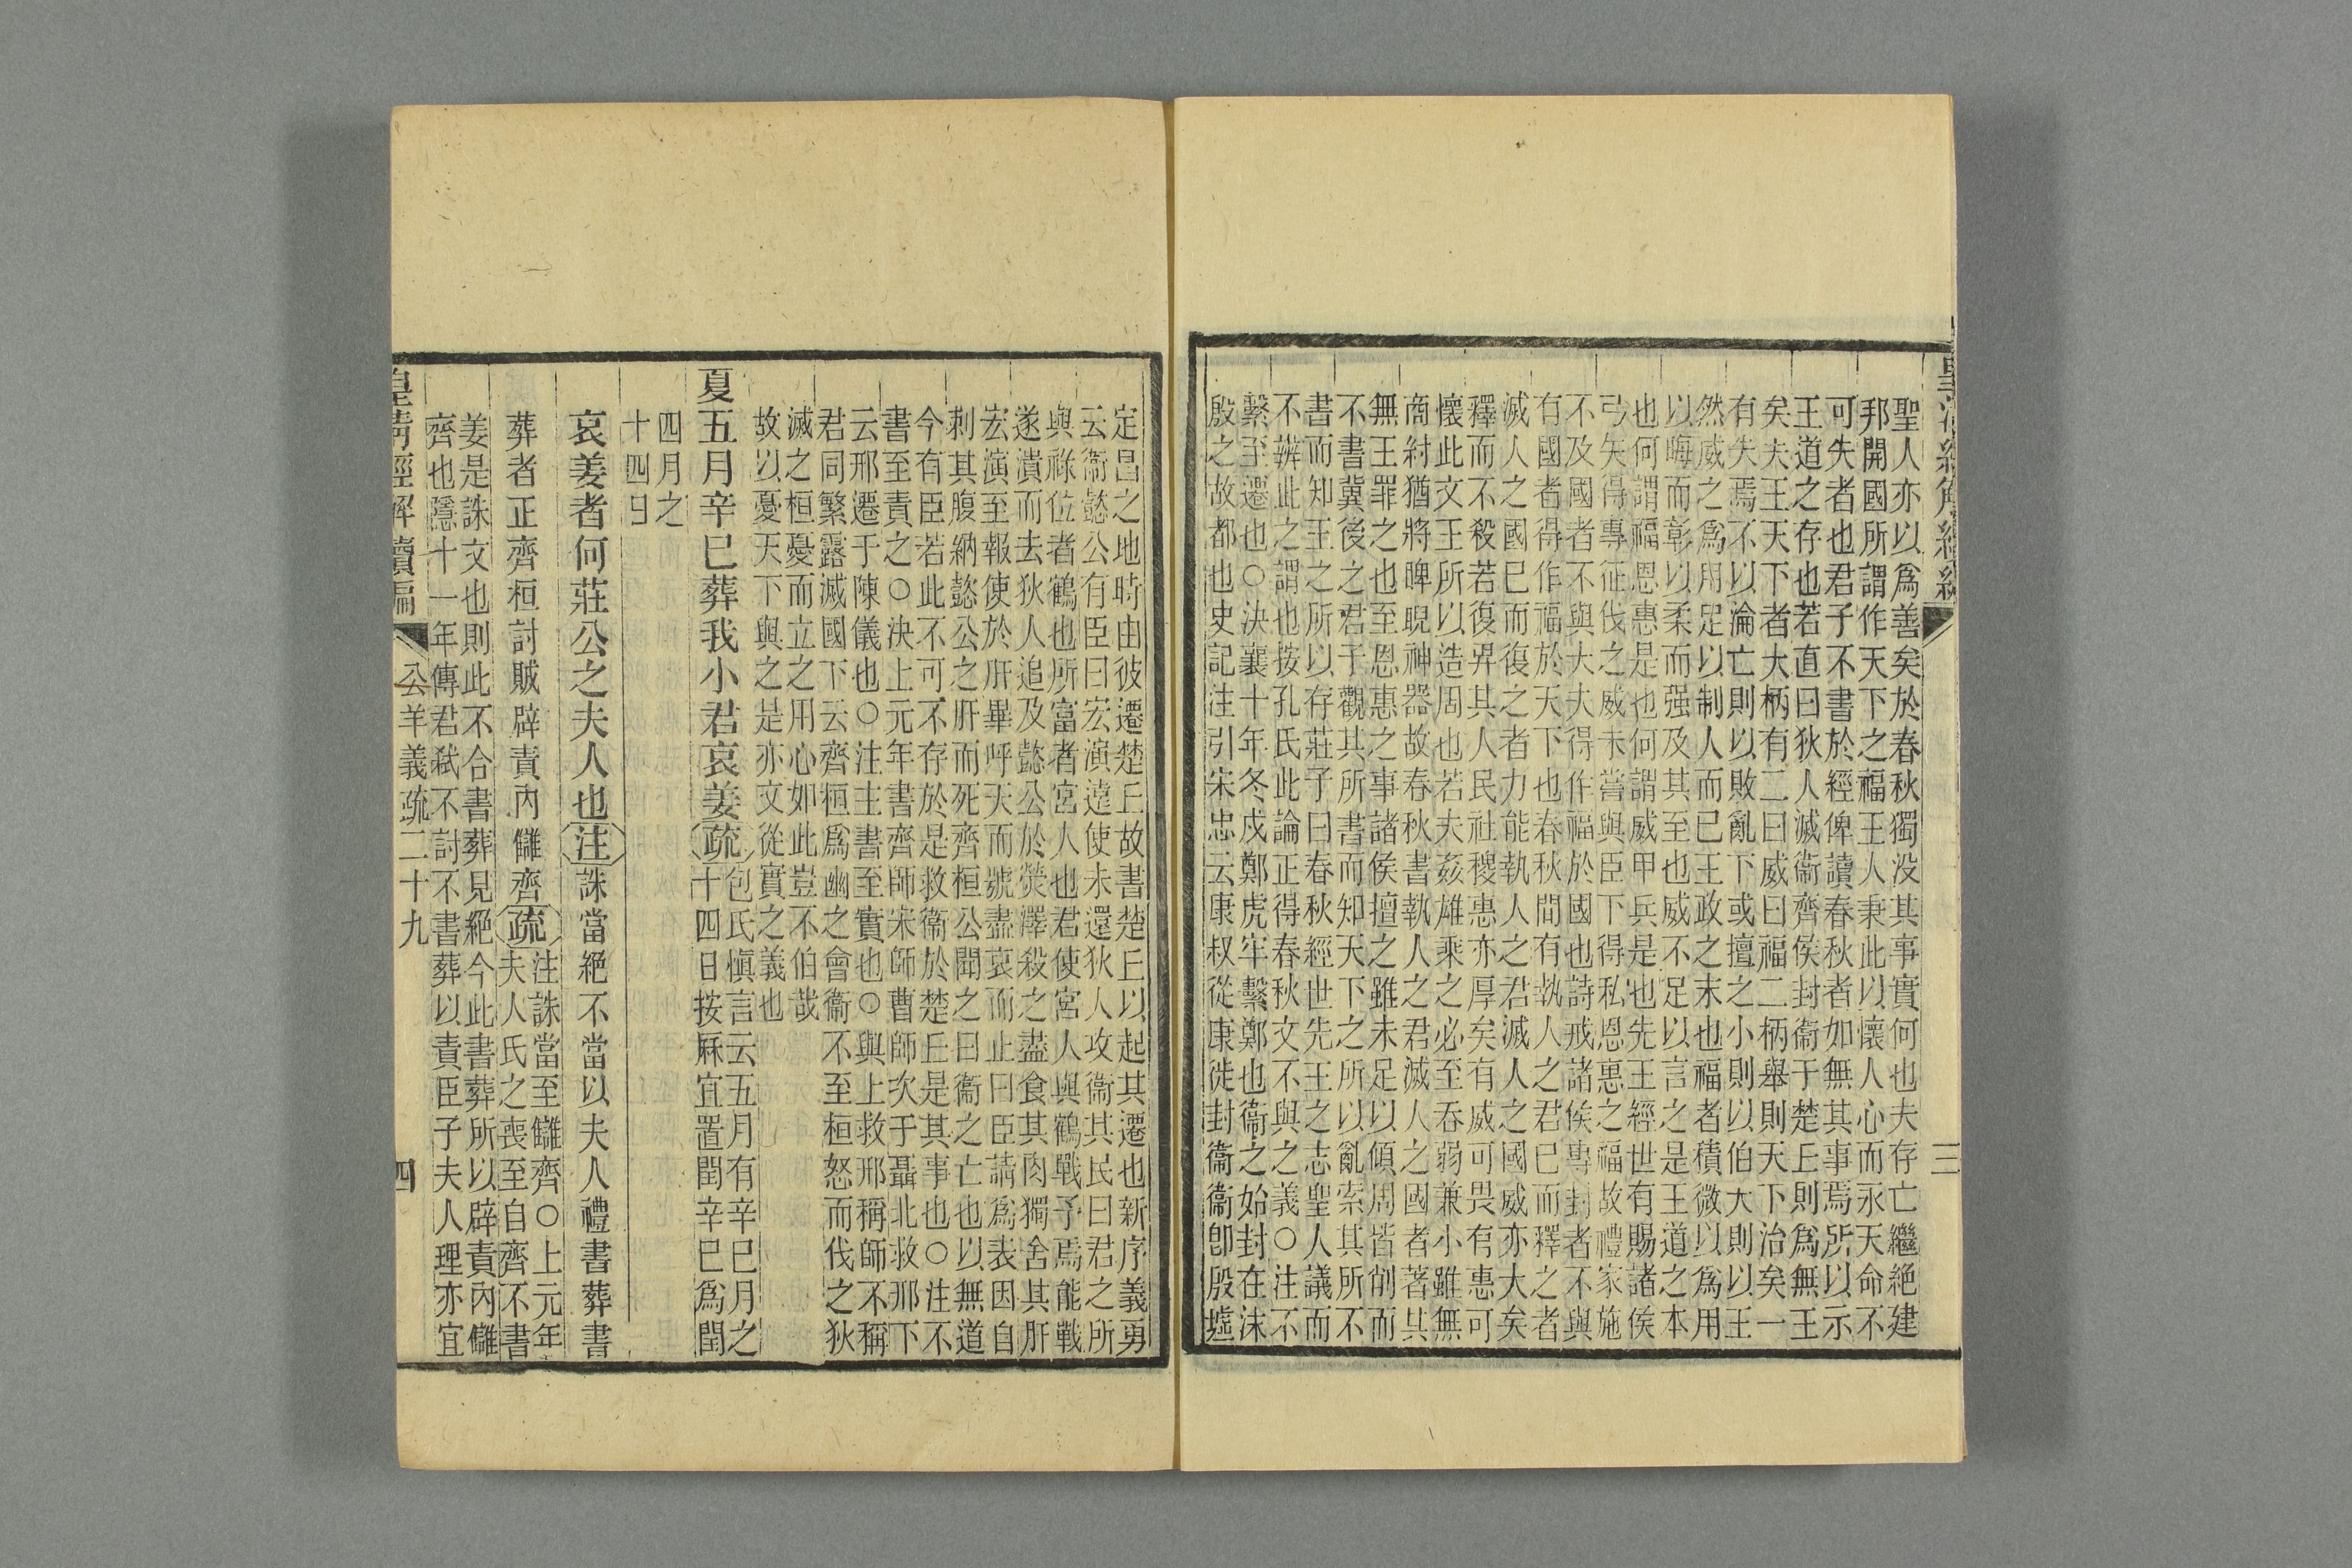 聖人亦以爲善矣於春秋獨没其事實何也夫存亡繼絶建
邦開國所謂作天下之福王人秉此以懷人心而永天命不
可失者也君子不書於經俾讀春秋者如無其事焉所以示
王道之存也若直曰狄人滅衞齊侯封衞于楚丘則爲無王
矣夫王天下者大柄有二曰威曰福二柄舉則天下治矣一
有失焉不以淪亡則以敗亂下或擅之小則以伯大則以王
然威之爲用足以制人而已王政之末也福者積微以爲用
以晦而彰以柔而强及其至也威不足以言之是王道之本
也何謂福恩惠是也何謂威甲兵是也先王經世有賜諸侯
弓矢得專征伐之威未嘗與臣下得私恩惠之福故禮家施
不及國者不與大夫得作福於國也詩戒諸侯專封者不與
有國者得作福於天下也春秋間有執人之君已而釋之者
滅人之國已而復之者力能執人之君滅人之國威亦大矣
釋而不殺若復畀其人民社稷惠亦厚矣有威可畏有惠可
懷此文王所以造周也若夫姦雄乘之必至吞弱兼小雖無
商紂猶將睥睨神器故春秋書執人之君滅人之國者著其
無王罪之也至恩惠之事諸侯擅之雖未足以傾周皆削而
不書冀後之君子觀其所書而知天下之所以亂索其所不
書而知王之所以存莊子曰春秋經世先王之志聖人議而
不辨此之謂也按孔氏此論正得春秋文不與之義○注不
繫至遷也○決襄十年冬戍鄭虎牢繫鄭也衞之始封在沬
殷之故都也史記注引宋忠云康叔從康徙封衞衞卽殷墟
三
定昌之地時由彼遷楚丘故書楚丘以起其遷也新序義勇
云衞懿公有臣曰宏演遠使未還狄人攻衞其民曰君之所
與祿位者鶴也所富者宮人也君使宮人與鶴戰予焉能戰
遂潰而去狄人追及懿公於熒澤殺之盡食其肉獨舍其肝
宏演至報使於肝畢呼天而號盡哀而止曰臣請爲表因自
刺其腹納懿公之肝而死齊桓公聞之曰衞之亡也以無道
今有臣若此不可不存於是救衞於楚丘是其事也○注不
書至責之○決上元年書齊師宋師曹師次于聶北救邢下
云邢遷于陳儀也○注主書至實也○與上救邢稱師不稱
君同繁露滅國下云齊桓爲幽之會衞不至桓怒而伐之狄
滅之桓憂而立之用心如此豈不伯哉
故以憂天下與之是亦文從實之義也
夏五月辛巳葬我小君哀姜疏包氏愼言云五月有辛巳月之
十四日按厤宜置閏辛巳爲閏
四月之
十四日
哀姜者何莊公之夫人也注誅當絕不當以夫人禮書葬書
葬者正齊桓討賊辟責內讎齊疏注誅當至讎齊○上元年
夫人氏之喪至自齊不書
姜是誅文也則此不合書葬見絕今此書葬所以辟責內讎
齊也隱十一年傳君弑不討不書葬以責臣子夫人理亦宜
皇淸經解續編
公羊義疏二十九
四